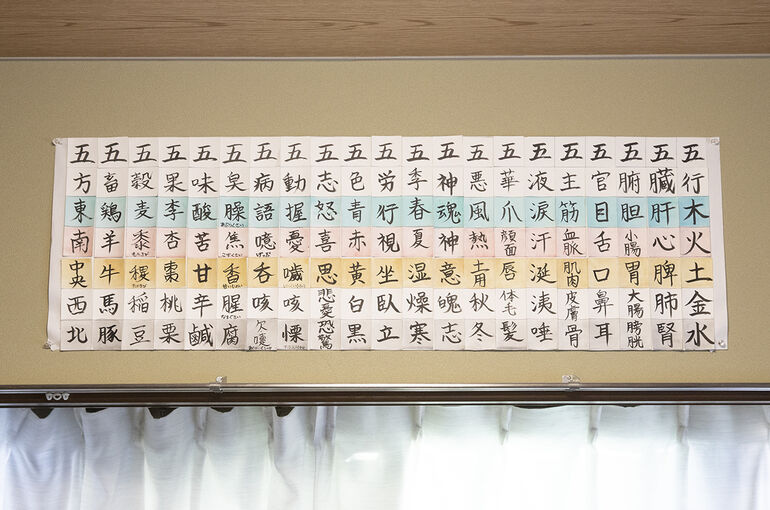 五行木火土金水
五臓肝心脾肺腎
五腑胆小腸胃大腸膀胱
五官目舌口鼻耳
五主筋血脈肌肉皮膚骨
五液涙汗涎洟唾
五華爪顔面唇体毛髪
五悪風熱土用秋冬
五神魂神意魄志
五季春夏湿燥寒
五労行視坐臥立
五色青赤黄白黒
五志怒喜思悲憂恐驚
五動握憂噦咳慄
五病語噫呑咳欠嚔
五臭臊焦香腥腐
五味酸苦甘辛鹹
五果李杏棗桃栗
五穀麦黍稷稲豆
五畜鶏羊牛馬豚
五方東南中央西北